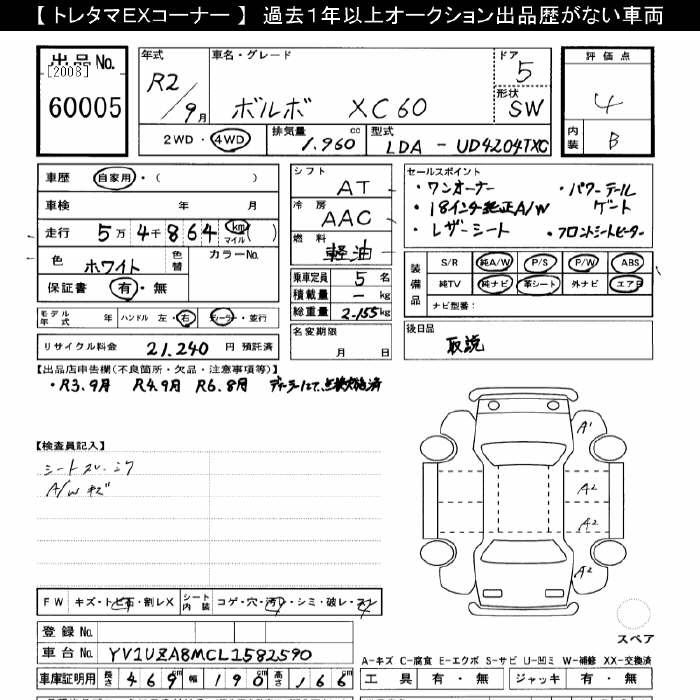 【 トレタマEXコーナー 】 過去1年以上オークション出品歴がない車両
出品No.
[2008]
60005
年式
R2/9月
車名・グレード
ボルボ XC60
ドア
5
形状
SW
評価点
4
内装
B
2WD・4WD
排気量
1.960 cc
型式
LDA - UD4204TXC
車歴 自家用・( )
車検 年 月
走行 5万4千864 km マイル )
色 ホワイト 色替 カラーNo.
保証書 有・無
シフト
AT
冷房
AAC
燃料
軽油
乗車定員 5 名
積載量 - kg
総重量 2,155 kg
セールスポイント
・ワンオーナー ・パワーテール
・18インチ純正A/W ゲート
・レザーシート ・フロントシートヒーター
装備品
S/R 純A/W P/S P/W ABS
純TV 純ナビ 革シート 外ナビ エアB
ナビ型番：
モデル年式 年 ハンドル 左・右 ディーラー・並行
リサイクル料金 21,240 円 預託済
名変期限
月 日
後日品
取説
【出品店申告欄(不良箇所・欠品・注意事項等)】
・R3.9月 R4.9月 R6.8月 ディーラーにて、点検実施済
【検査員記入】
シートスレ・シワ
A/W キズ
A1
A2
A2
A2
スペア
FW キズ・トビ石・割レX シート内装 コゲ・穴・汚レ・シミ・破レ・スレ
登録No.
車台No. YV1UZA8MCL1582590
車庫証明用 長さ 469 cm 幅 190 cm 高さ 166 cm
A-キズ C-腐食 E-エクボ S-サビ U-凹ミ W-補修 XX-交換済
工具 有・無 ジャッキ 有・無